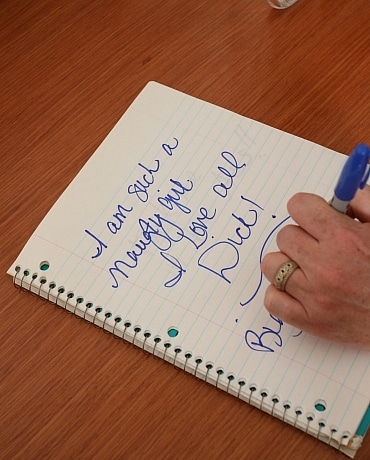 I am such a
naughty girl
I Love all
Dick!